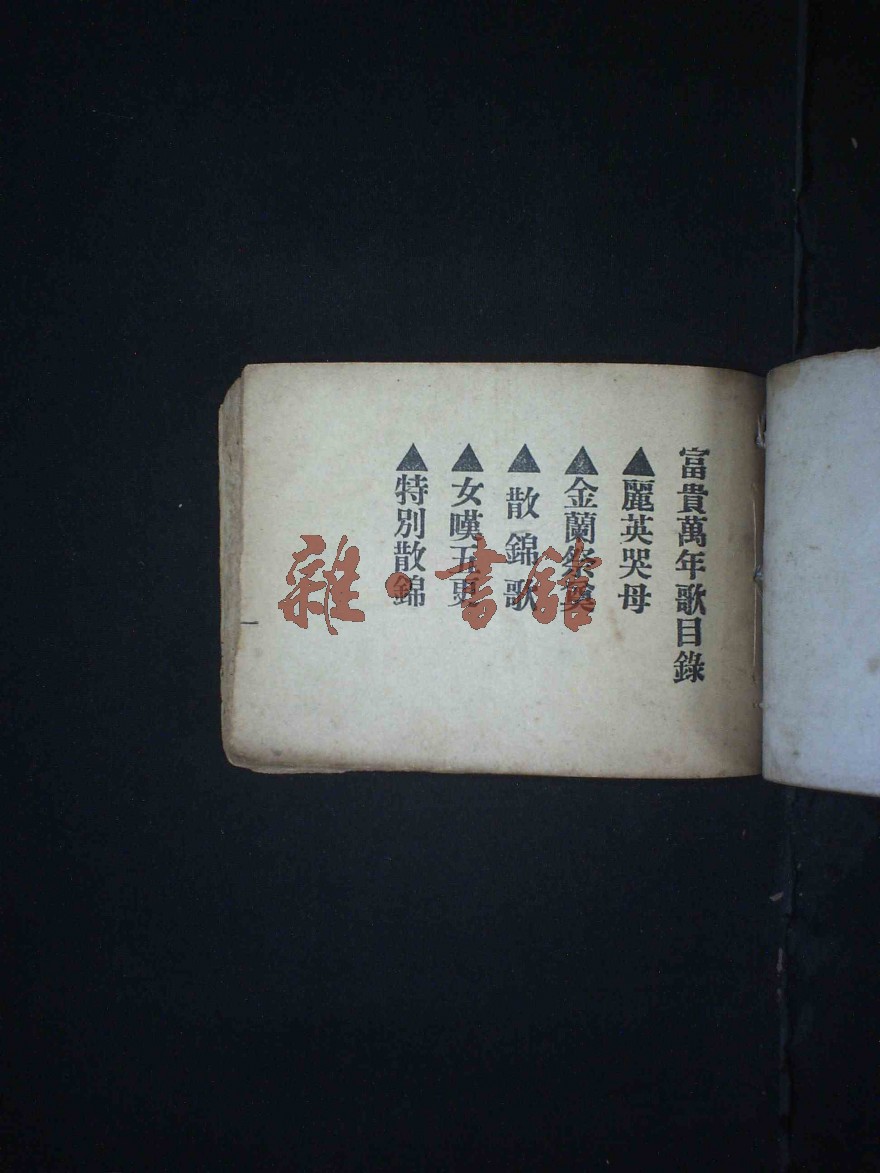 富貴萬年歌目錄
▲麗英哭母
▲金蘭祭奠
▲散錦歌
▲女嘆五更
▲特別散錦
一
雜·書館